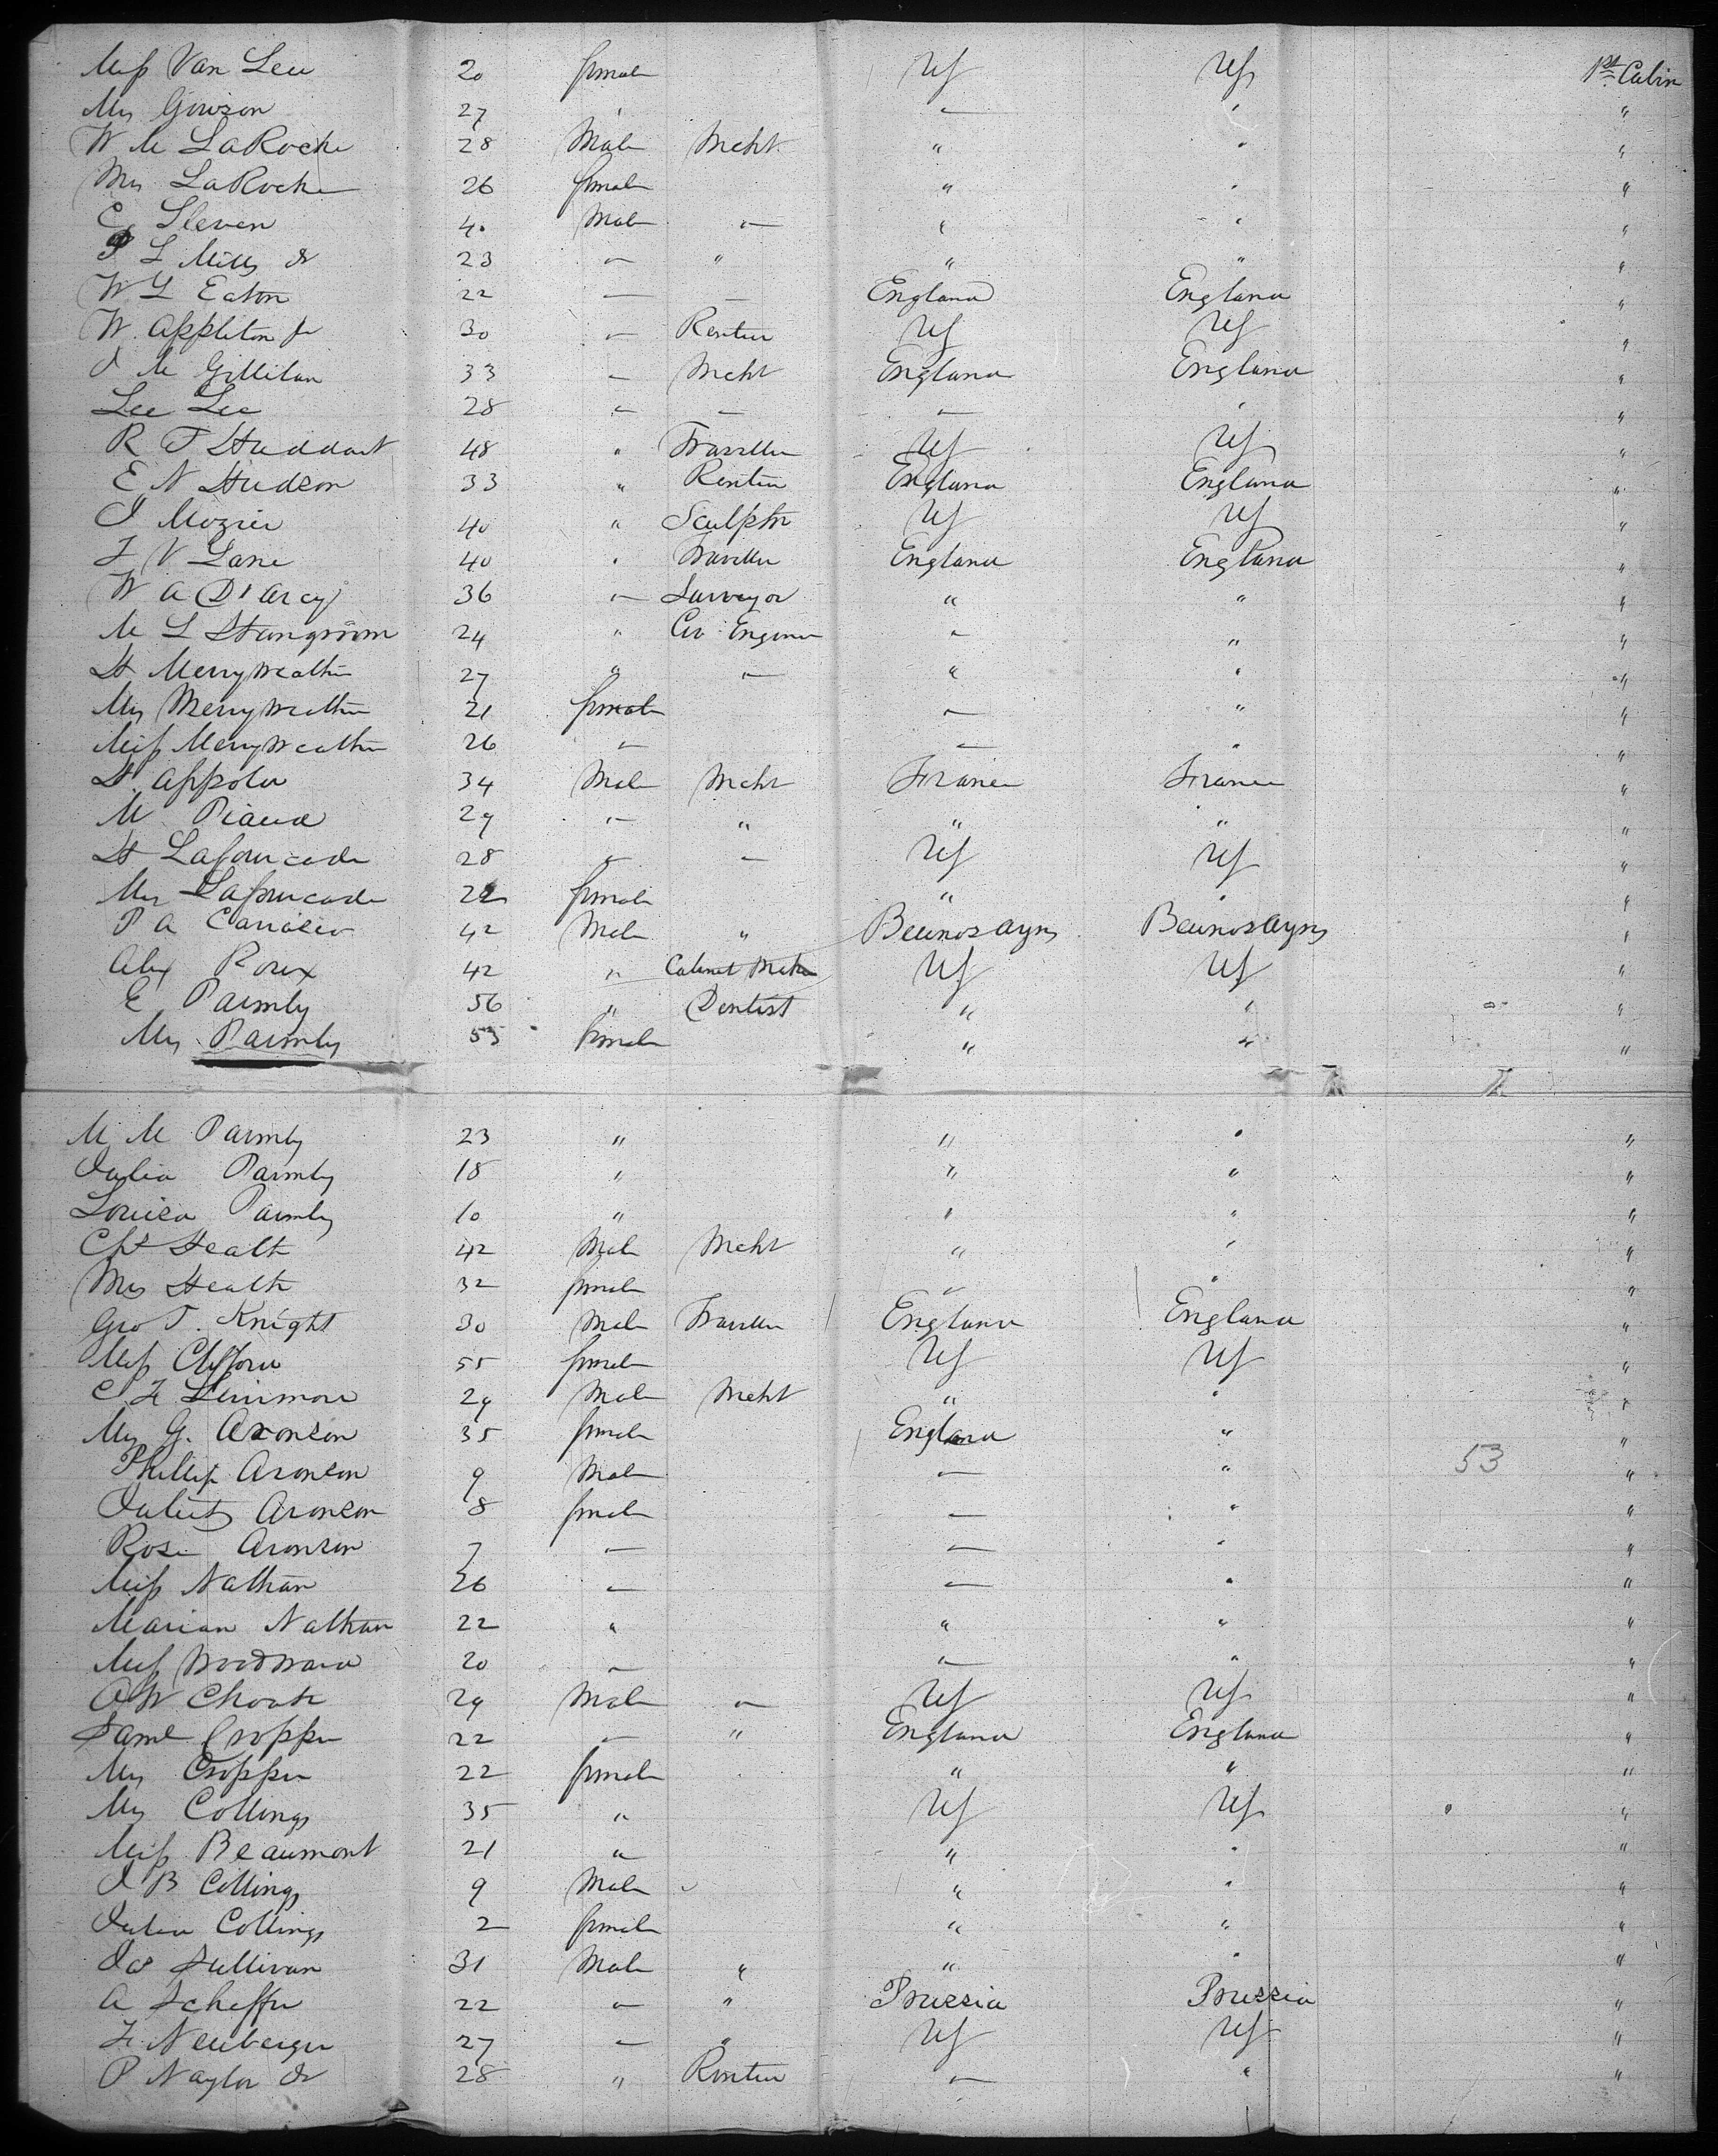 Miss Van Leu 20 female US US 1st Cabin
Mrs Gowson 27 " — " "
W M LaRoche 28 Male Mcht " " "
Mrs LaRoche 26 female " " "
C Sleven 40 Male " " " "
P L Mills Jr 23 " " " " "
W L Eaton 22 — — England England "
W. Appleton Jr 30 " Rentier US US "
J M Gillilan 33 " Mcht England England "
Lee Lee 28 " — — " "
R T Huddart 48 " Traveller US US "
E N Hudson 33 " Rentier England England "
J Mozier 40 " Sculptor US US "
F V Lane 40 " Traveller England England "
W A D'Arcy 36 " Surveyor " " "
M L Hangroom 24 " Civ Engineer " " "
H Merryweather 27 " " " " "
Mrs Merryweather 21 female — " "
Miss Merryweather 26 " — " "
H. Appolu 34 Male Mcht France France "
M Piaud 29 " " " " "
H Lafourcade 28 " — US US "
Mrs Lafourcade 22 female " " "
P A Carraseo 42 Male " Beunos ayrs Beunos Ayrs "
Alex Roux 42 " Cabinet Maker US US "
E Parmly 56 " Dentist " " "
Mrs Parmly 55 female " " "
M M Parmly 23 " " " "
Julia Parmly 18 " " " "
Louisa Parmly 10 " " " "
Cht Heath 42 Male Mcht " " "
Mrs Heath 32 female " " "
Geo T. Knight 30 Male Traveller England England "
Miss Clifford 55 female US US "
C F Livimore 29 Male Mcht " " "
Mrs G. Aronson 35 female England " "
Phillip Aronson 9 Male — " 53 "
Juliet Aronson 8 female — " "
Rose Aronson 7 — — " "
Miss Nathan 26 — — " "
Marian Nathan 22 " " " "
Miss Woodward 20 — — " "
A W Choate 29 Male " US US "
Saml Cropper 22 — " England England "
Mrs Cropper 22 female " " "
Mrs Collings 35 " US US "
Miss Beaumont 21 " " " "
J B Collings 9 Male " " "
Julia Collings 2 female " " "
Jas Sullivan 31 Male " " " "
A Scheffer 22 " " Prussia Prussia "
F Neuberger 27 — " US US "
P Naylor Jr 28 " Rentier — " "